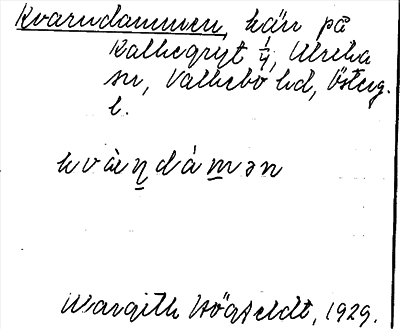 Kvarndammen, kärr på
Kalhegryt 1/4, Ulrika
sn, Valkebo hd, Österg.
l.
kvàṇdámən
Margith Högfeldt, 1929.